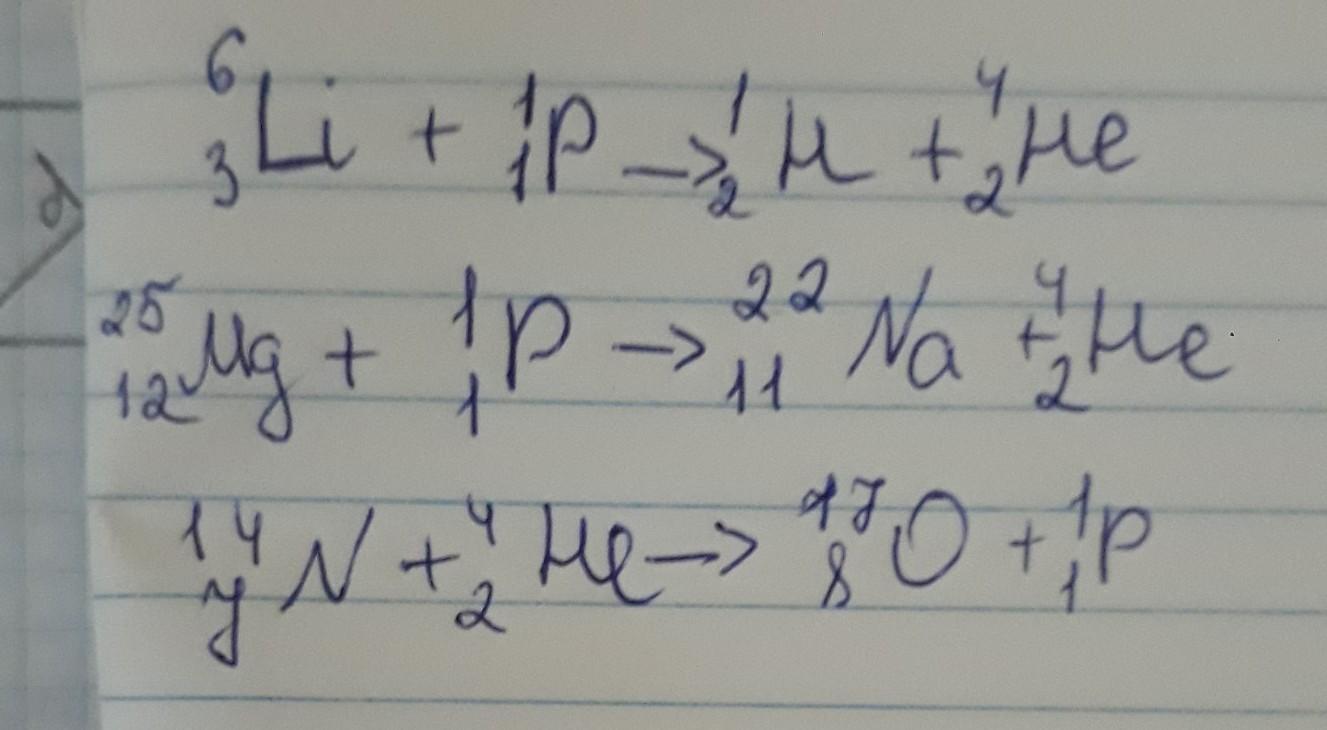 ⁶₃Li + ¹₁p → ¹₂H + ⁴₂He
²⁵₁₂Mg + ¹₁p → ²²₁₁Na + ⁴₂He
¹⁴₇N + ⁴₂He → ¹⁷₈O + ¹₁p